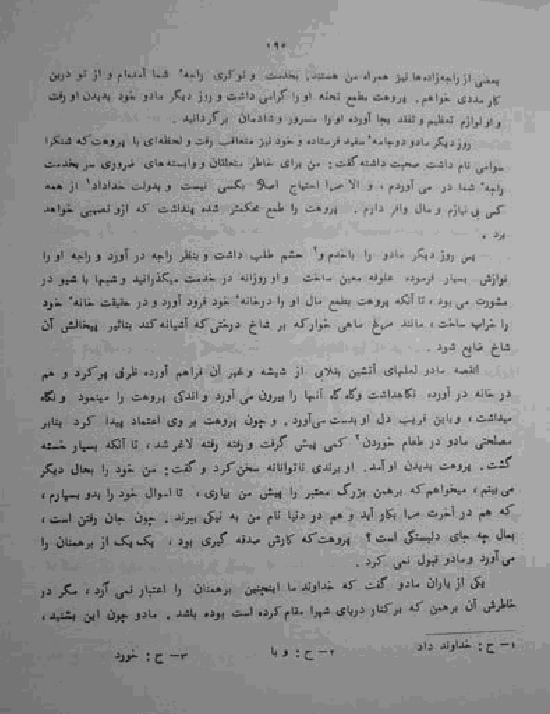 ۱۹۵
بعضی از راجه‌زاده‌ها نیز همراه من هستند، بخدمت و نوکری راجه شما آمده‌ام و از تو درین
کار مددی خواهم. پروهت بطمع تحفه او را گرامی داشت و روز دیگر مادو خود بدیدن او رفت
و او لوازم تعظیم و تفقد بجا آورده او را مسرور و شادمان برگردانید.
روز دیگر مادو دوجامه سفید فرستاده و خود نیز متعاقب رفت و لحظه‌ای با پروهت که شنکرا
سوامی نام داشت صحبت داشته گفت: من برای خاطر متعلقان و وابسته‌های ضروری سر بخدمت
راجه شما در می آوردم، و الا مرا احتیاج اصلا بکسی نیست و بدولت خداداد۱ از همه
کس بی نیازم و مال وافر دارم. پروهت را طمع محکمتر شده پنداشت که ازو نصیبی خواهد
برد.
پس روز دیگر مادو را باخدم و۲ حشم طلب داشت و بنظر راجه در آورد و راجه او را
نوازش بسیار فرموده علوفه معین ساخت و او روزانه در خدمت میگذرانید و شبها با شیو در
مشورت می بود، تا آنکه پروهت بطمع مال او را درخانه خود فرود آورد و در حقیقت خانه خود
را خراب ساخت، مانند مرغ ماهی خوار که بر شاخ درختی که آشیانه کند بتاثیر پیخالش آن
شاخ ضایع شود.
القصه مادو لعلهای آتشین بدلی از شیشه و غیر آن فراهم آورده ظرفی پر کرد و هم
در خانه در آورده نگاهداشت و گاه گاه آنها را بیرون می آورد و اندکی پروهت را مینمود و نگاه
میداشت، و باین فریب دل او بدست می‌آورد. و چون پروهت بر وی اعتماد پیدا کرد بنابر
مصلحتی مادو در طعام خوردن۳ کمی پیش گرفت و رفته رفته لاغر شد، تا آنکه بسیار خسته
گشت. پروهت بدیدن او آمد. او برندی ناتوانانه سخن کرد و گفت: من خود را بحال دیگر
می بینم، میخواهم که برهمن بزرگ معتبر را پیش من بیاری، تا اموال خود را بدو بسپارم،
که هم در آخرت مرا بکار آید و هم در دنیا نام من به نیکی ببرند. چون جان رفتن است،
بمال چه جای دلبستگی است؟ پروهت که کارش صدقه گیری بود، یک یک از برهمنان را
می آورد و مادو قبول نمی کرد.
یکی از یاران مادو گفت که خداوند ما اینچنین برهمنان را اعتبار نمی آرد، مگر در
خاطرش آن برهمن که برکنار دریای شپرا مقام کرده است بوده باشد. مادو چون این بشنید،
۱- ح: خداوند داد ۲- ح: و با ۳- ح: خورد